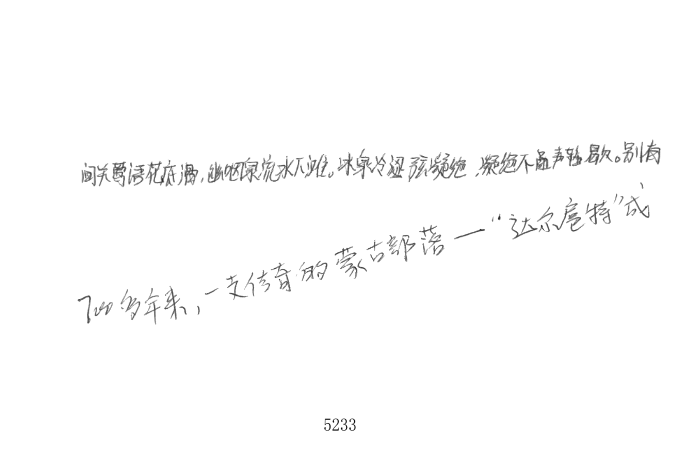 间关莺语花底滑，幽咽泉流水下难。冰泉冷涩弦凝绝，凝绝不通声暂歇。别有
700多年来，一支传奇的蒙古部落一“达尔扈特”成
5233